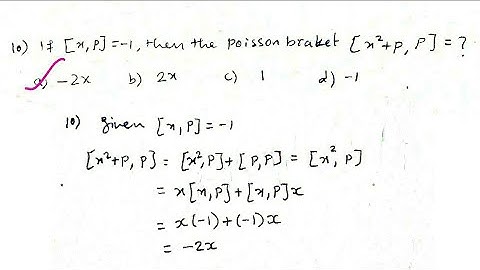 10) If [x,p]=-1, then the poisson braket [x²+p, p] = ?
a) -2x b) 2x c) 1 d) -1
10) Given [x,p] = -1
[x²+p, p] = [x²,p]+[p,p] = [x², p]
= x[x,p]+[x,p]x
= x(-1)+(-1)x
= -2x